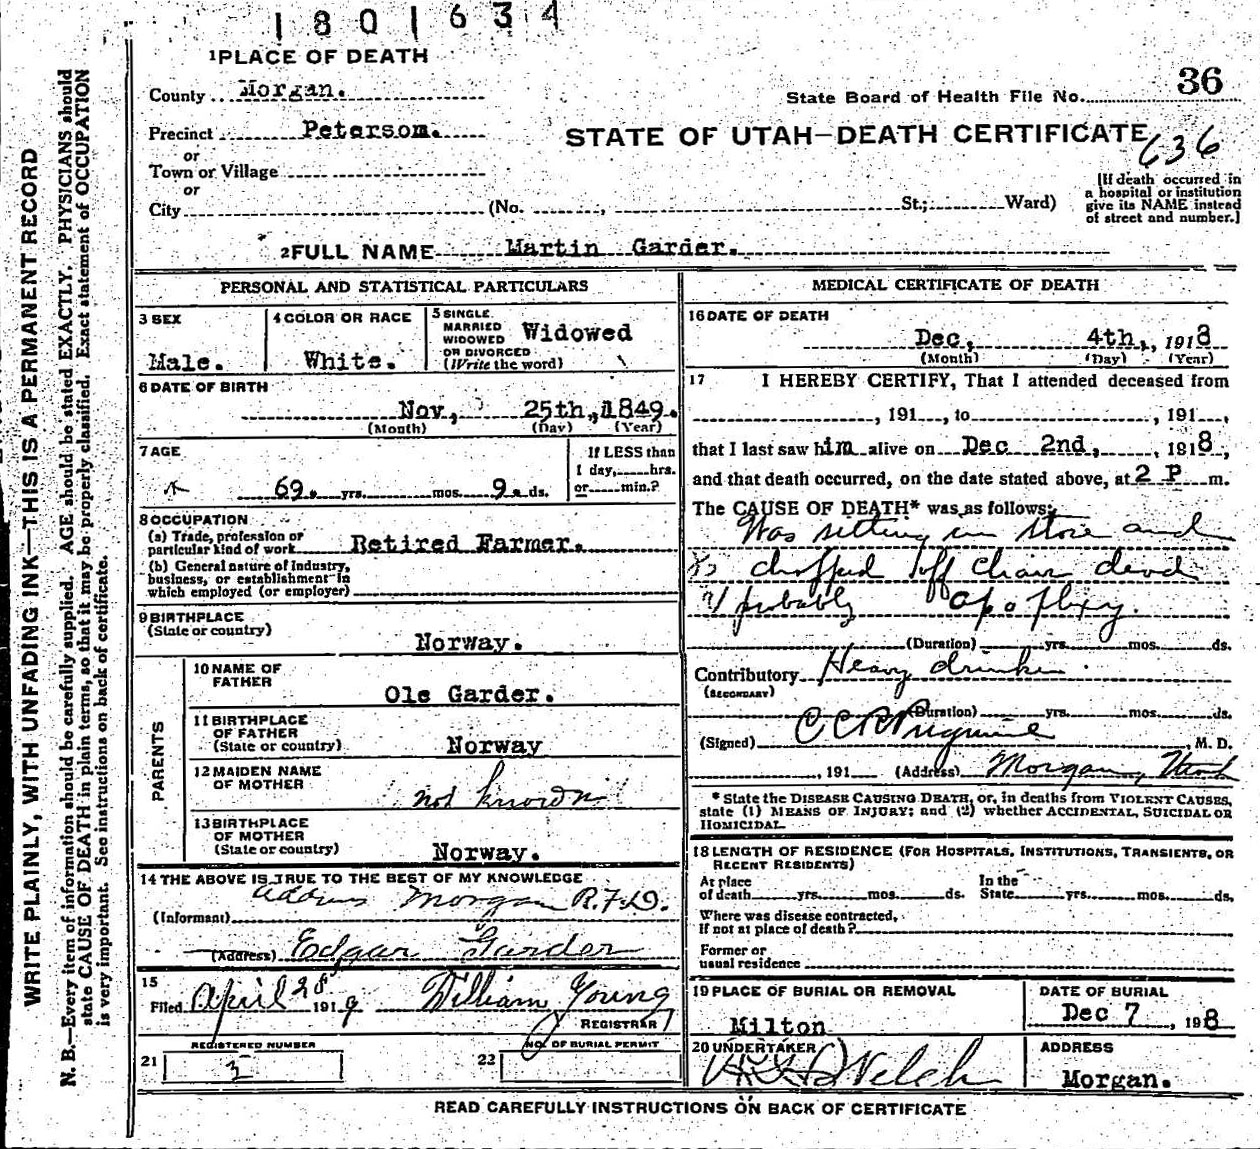 1801634
1PLACE OF DEATH
County Morgan.
State Board of Health File No. 36
Precinct Peterson.
STATE OF UTAH—DEATH CERTIFICATE
636
or
Town or Village
or
City (No. , St.; Ward)
[If death occurred in
a hospital or institution
give its NAME instead
of street and number.]
2FULL NAME Martin Garder.
WRITE PLAINLY, WITH UNFADING INK—THIS IS A PERMANENT RECORD
N. B.—Every item of information should be carefully supplied. AGE should be stated EXACTLY. PHYSICIANS should
state CAUSE OF DEATH in plain terms, so that it may be properly classified. Exact statement of OCCUPATION
is very important. See instructions on back of certificate.
PERSONAL AND STATISTICAL PARTICULARS
3 SEX
Male.
4 COLOR OR RACE
White.
5 SINGLE
MARRIED
WIDOWED
OR DIVORCED
(Write the word)
Widowed
6 DATE OF BIRTH
Nov, 25th, 1849.
(Month) (Day) (Year)
7 AGE
69. yrs. mos. 9. ds.
If LESS than
1 day, hrs.
or min.?
8 OCCUPATION
(a) Trade, profession or
particular kind of work Retired Farmer.
(b) General nature of Industry,
business, or establishment in
which employed (or employer)
9 BIRTHPLACE
(State or country)
Norway.
PARENTS
10 NAME OF
FATHER
Ole Garder.
11 BIRTHPLACE
OF FATHER
(State or country) Norway
12 MAIDEN NAME
OF MOTHER
not known
13 BIRTHPLACE
OF MOTHER
(State or country) Norway.
14 THE ABOVE IS TRUE TO THE BEST OF MY KNOWLEDGE
Address Morgan R.F.D.
(Informant)
(Address) Edgar Garder
15
Filed April 28 1919 William Young
REGISTRAR
REGISTERED NUMBER
21 3
NO. OF BURIAL PERMIT
22
MEDICAL CERTIFICATE OF DEATH
16 DATE OF DEATH
Dec, 4th, 1918
(Month) (Day) (Year)
17 I HEREBY CERTIFY, That I attended deceased from
, 191 , to , 191 ,
that I last saw him alive on Dec 2nd, , 1918,
and that death occurred, on the date stated above, at 2 P m.
The CAUSE OF DEATH* was as follows:
Was sitting in store and
dropped off chair dead
probably apoplexy.
(Duration) yrs. mos. ds.
Contributory Heavy drinker.
(SECONDARY)
(Duration) yrs. mos. ds.
(Signed) , M. D.
, 191 (Address) Morgan, Utah
* State the DISEASE CAUSING DEATH, or, in deaths from VIOLENT CAUSES,
state (1) MEANS OF INJURY; and (2) whether ACCIDENTAL, SUICIDAL OR
HOMICIDAL.
18 LENGTH OF RESIDENCE (FOR HOSPITALS, INSTITUTIONS, TRANSIENTS, OR
RECENT RESIDENTS)
At place In the
of death yrs. mos. ds. State yrs. mos. ds.
Where was disease contracted,
If not at place of death?
Former or
usual residence
19 PLACE OF BURIAL OR REMOVAL
Milton
DATE OF BURIAL
Dec 7 , 1918
20 UNDERTAKER
Welch
ADDRESS
Morgan.
READ CAREFULLY INSTRUCTIONS ON BACK OF CERTIFICATE